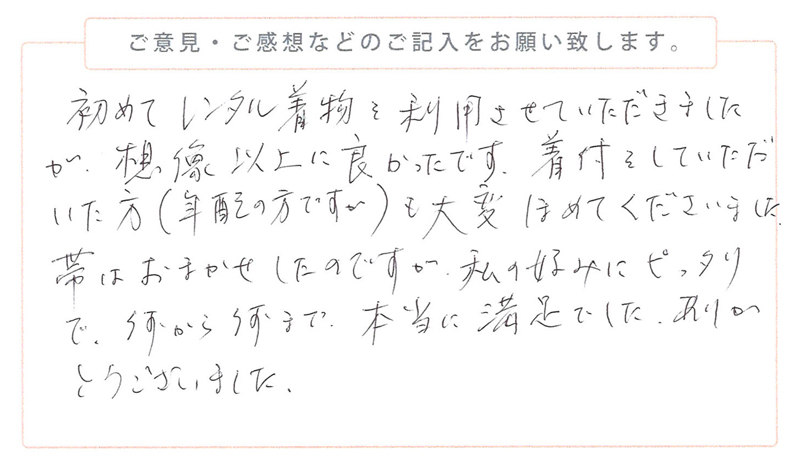 ご意見・ご感想などのご記入をお願い致します。
初めてレンタル着物を利用させていただきました
が、想像以上に良かったです。着付をしていただ
いた方(年配の方ですが)も大変ほめてくださいました。
帯はおまかせしたのですが、私の好みにピッタリ
で、何から何まで、本当に満足でした。ありが
とうございました。